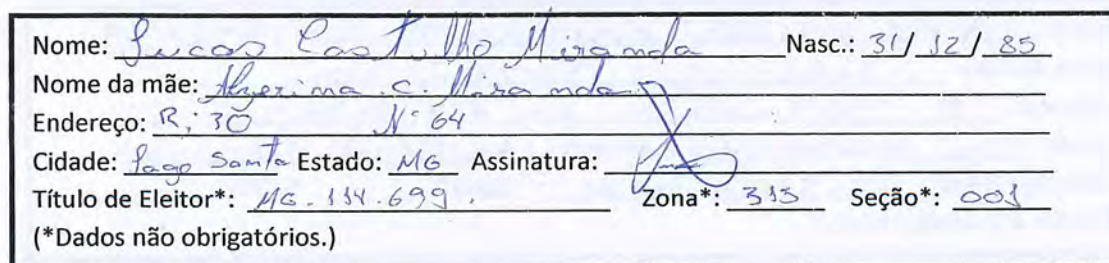 Nome: Lucas Castilho Miranda Nasc.: 31/12/85
Nome da mãe: C. Miranda
Endereço: R; 30 Nº 64
Cidade: Lago Santa Estado: MG Assinatura:
Título de Eleitor*: MG.114.699. Zona*: 315 Seção*: 001
(*Dados não obrigatórios.)